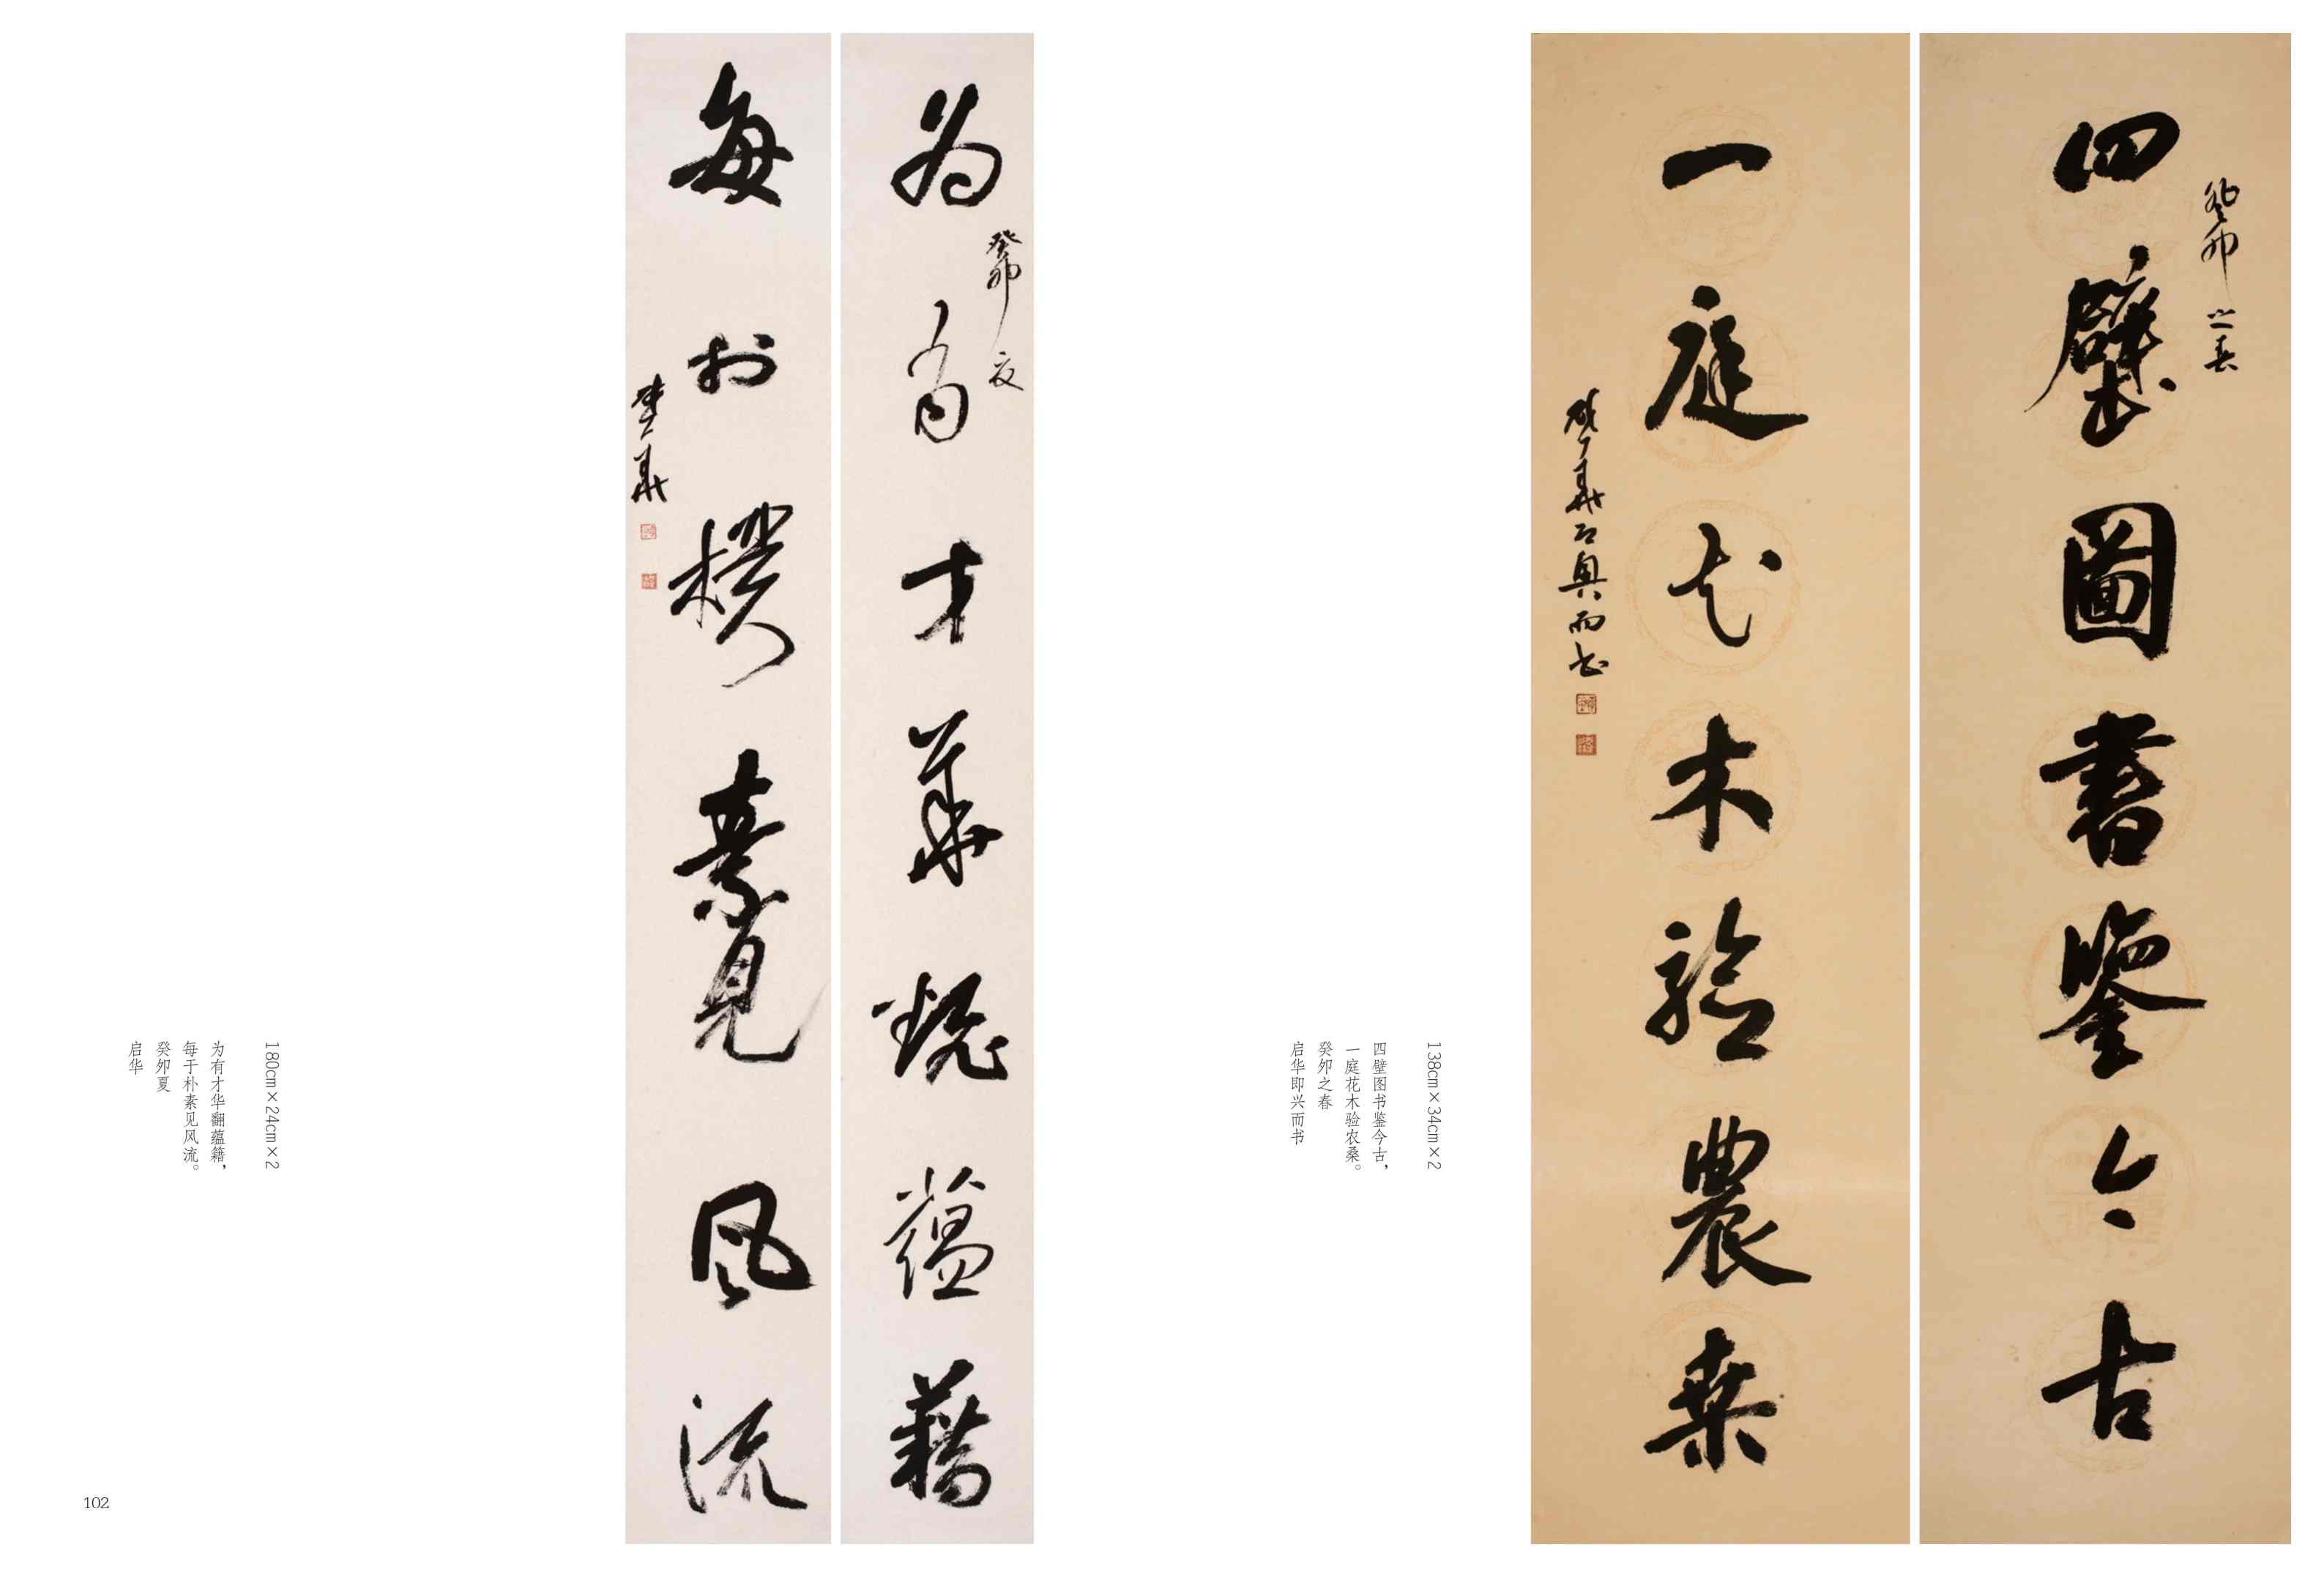 四壁圖書鑒今古
癸卯之春
一庭花木驗農桑
啓華即興而书
138cm×34cm×2
四壁图书鉴今古，
一庭花木验农桑。
癸卯之春
启华即兴而书
为有才華翻蘊藉
癸卯夏
每於樸素見風流
啓華
180cm×24cm×2
为有才华翻蕴籍，
每于朴素见风流。
癸卯夏
启华
102